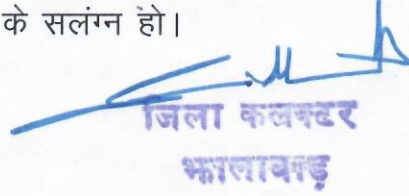 के सलंग्न हो।
जिला कलक्टर
झालावाड़